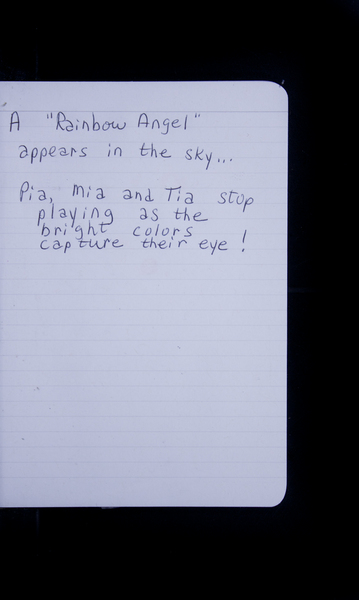 A "Rainbow Angel"
appears in the sky...
Pia, Mia and Tia stop
playing as the
bright colors
capture their eye!